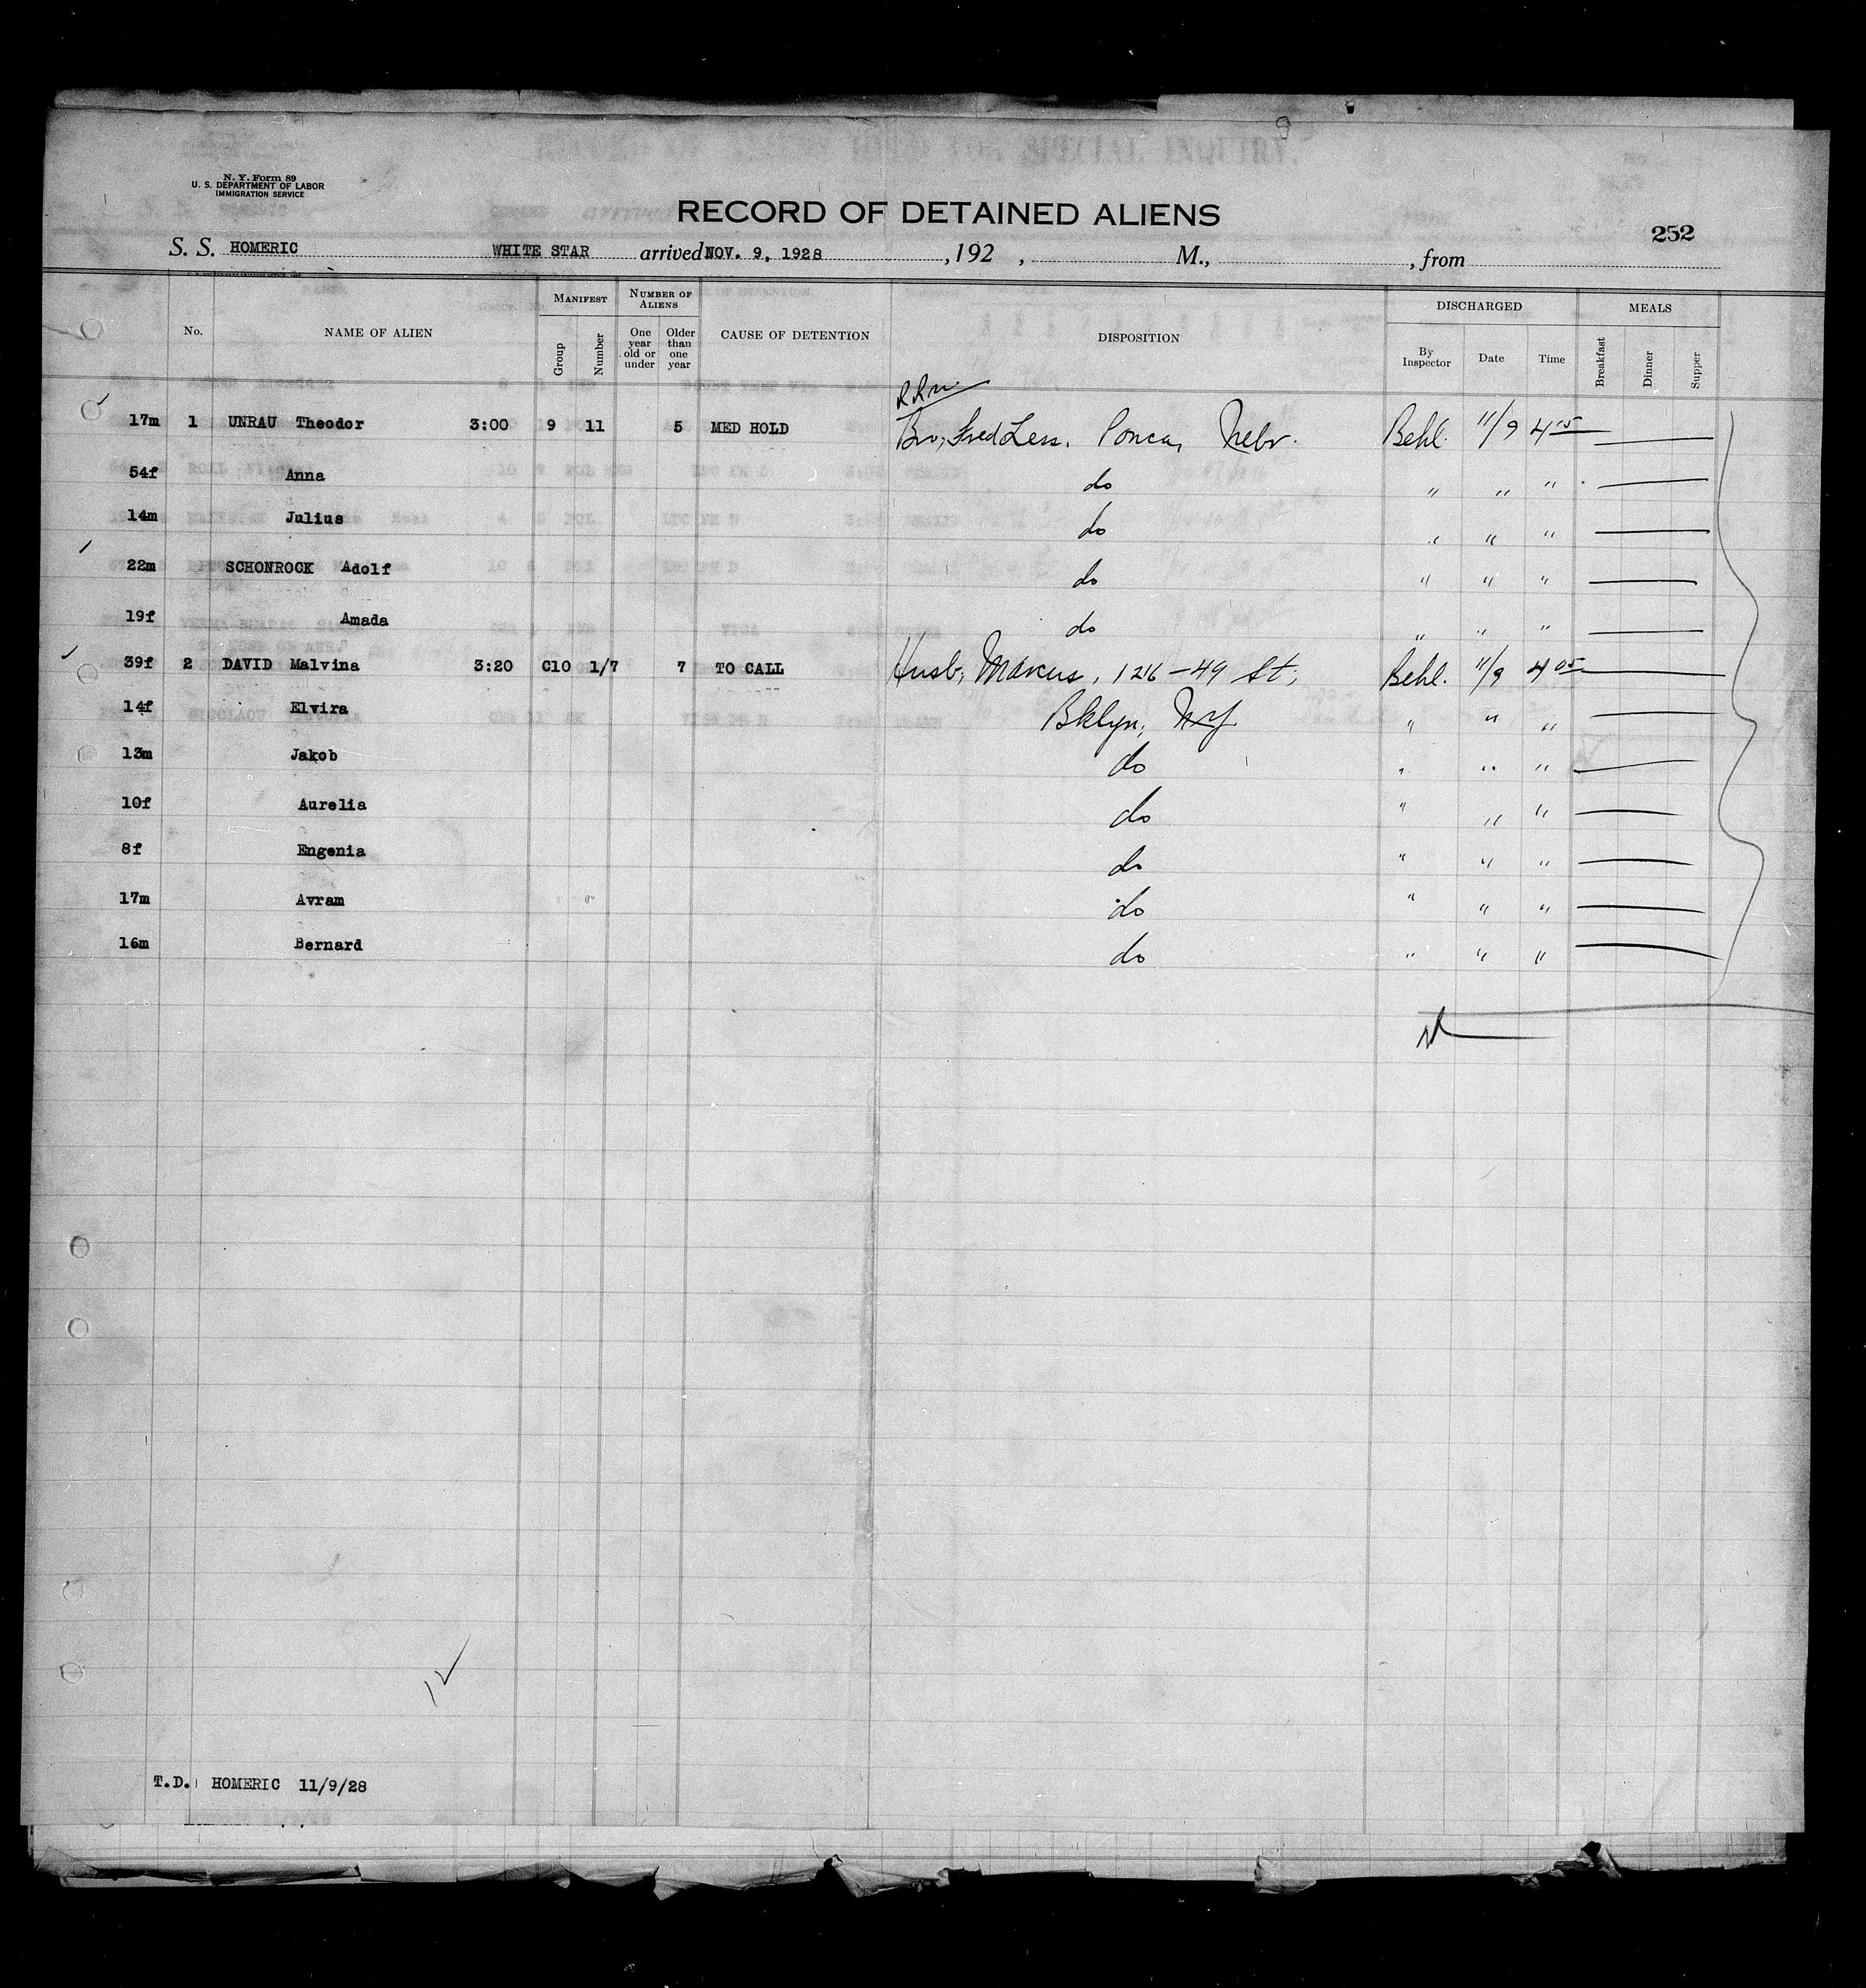 N. Y. Form 89
U. S. DEPARTMENT OF LABOR
IMMIGRATION SERVICE
RECORD OF DETAINED ALIENS
252
S. S. HOMERIC WHITE STAR arrived NOV. 9, 1928 , 192 , M., , from
No. NAME OF ALIEN MANIFEST Group Number NUMBER OF ALIENS One year old or under Older than one year CAUSE OF DETENTION DISPOSITION DISCHARGED By Inspector Date Time MEALS Breakfast Dinner Supper
17m 1 UNRAU Theodor 3:00 9 11 5 MED HOLD Bro, Fred Less. Ponca, Nebr. Behl. 11/9 4 05
54f Anna do " " "
14m Julius do " " "
22m SCHONROCK Adolf do " " "
19f Amada do " " "
39f 2 DAVID Malvina 3:20 C10 1/7 7 TO CALL Husb, Marcus, 1216-49 St, Behl. 11/9 4 05
14f Elvira Bklyn, NY " " "
13m Jakob do " " "
10f Aurelia do " " "
8f Engenia do " " "
17m Avram do " " "
16m Bernard do " " "
12
T.D. HOMERIC 11/9/28